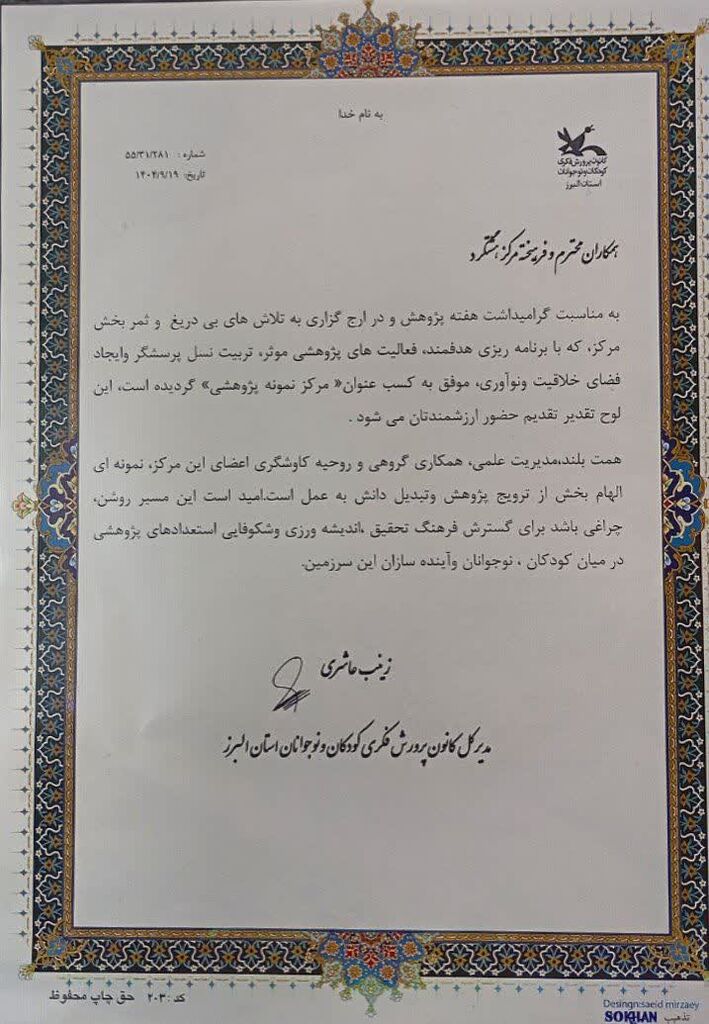 به نام خدا
کانون پرورش فکری
کودکان و نوجوانان
استان البرز
شماره : ۵۵/۳۱/۲۸۱
تاریخ: ۱۴۰۴/۹/۱۹
همکاران محترم و فرهیخته مرکز هشتگرد
به مناسبت گرامیداشت هفته پژوهش و در ارج گزاری به تلاش های بی دریغ و ثمر بخش
مرکز، که با برنامه ریزی هدفمند، فعالیت های پژوهشی موثر، تربیت نسل پرسشگر وایجاد
فضای خلاقیت ونوآوری، موفق به کسب عنوان« مرکز نمونه پژوهشی» گردیده است، این
لوح تقدیر تقدیم حضور ارزشمندتان می شود .
همت بلند،مدیریت علمی، همکاری گروهی و روحیه کاوشگری اعضای این مرکز، نمونه ای
الهام بخش از ترویج پژوهش وتبدیل دانش به عمل است.امید است این مسیر روشن،
چراغی باشد برای گسترش فرهنگ تحقیق ،اندیشه ورزی وشکوفایی استعدادهای پژوهشی
در میان کودکان ، نوجوانان وآینده سازان این سرزمین.
زینب عاشری
مدیر کل کانون پرورش فکری کودکان و نوجوانان استان البرز
کد : ۲۰۳ حق چاپ محفوظ
Desingn:saeid mirzaey
SOKHAN تذهیب